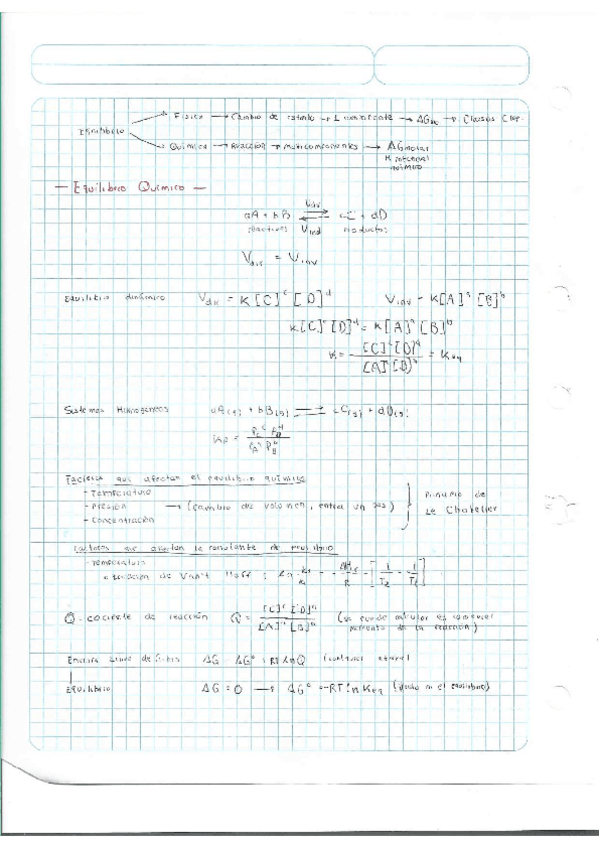 Físico → Cambio de estado → 1 componente → ΔG → Clausius Clap.
Equilibrio
Químico → Reacción → multicomponentes → ΔG molar
potencial
químico
— Equilibrio Químico —
V inv
aA + bB ⇌ cC + dD
reactivos V ind productos
V dir = V inv
Equilibrio dinámico V dir = K[C]^c [D]^d V inv = K[A]^a [B]^b
K[C]^c [D]^d = K[A]^a [B]^b
K = [C]^c [D]^d / [A]^a [B]^b = Keq
Sistemas Homogéneos aA(g) + bB(g) ⇌ cC(g) + dD(g)
Kp = P_C^c P_D^d / P_A^a P_B^b
Factores que afectan el equilibrio químico
- Temperatura
- Presión → (cambio de volumen, entra un gas) Principio de
- Concentración Le Chatelier
Factores que afectan la constante de equilibrio
- Temperatura
Ecuación de Van't Hoff : Ln = - / R [1/T2 - 1/T1]
Q- cociente de reacción Q = [C]^c [D]^d / [A]^a [B]^b (se puede calcular en cualquier
momento de la reacción)
Energía Libre de Gibbs ΔG ΔG° + RT Ln Q
Equilibrio ΔG = 0 → ΔG° = -RT Ln Keq (en el equilibrio)